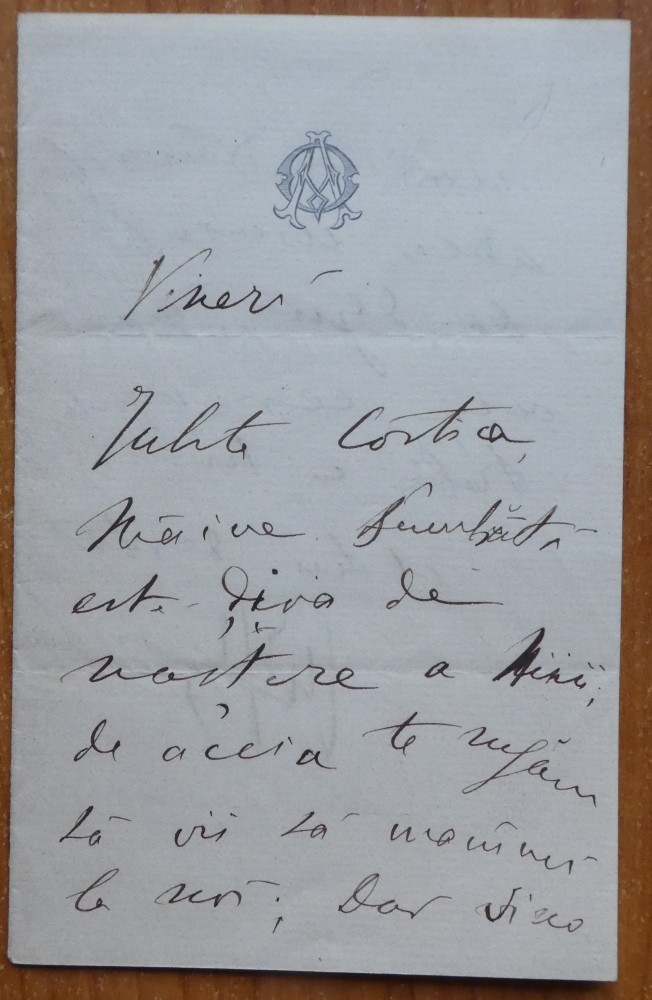 Vinerĭ
Iubite Costică,
Mâine Sâmbătă
este ḑiua de
naștere a Ninii,
de aceia te rugăm
să vii să mănânci
la noi; Dar vino